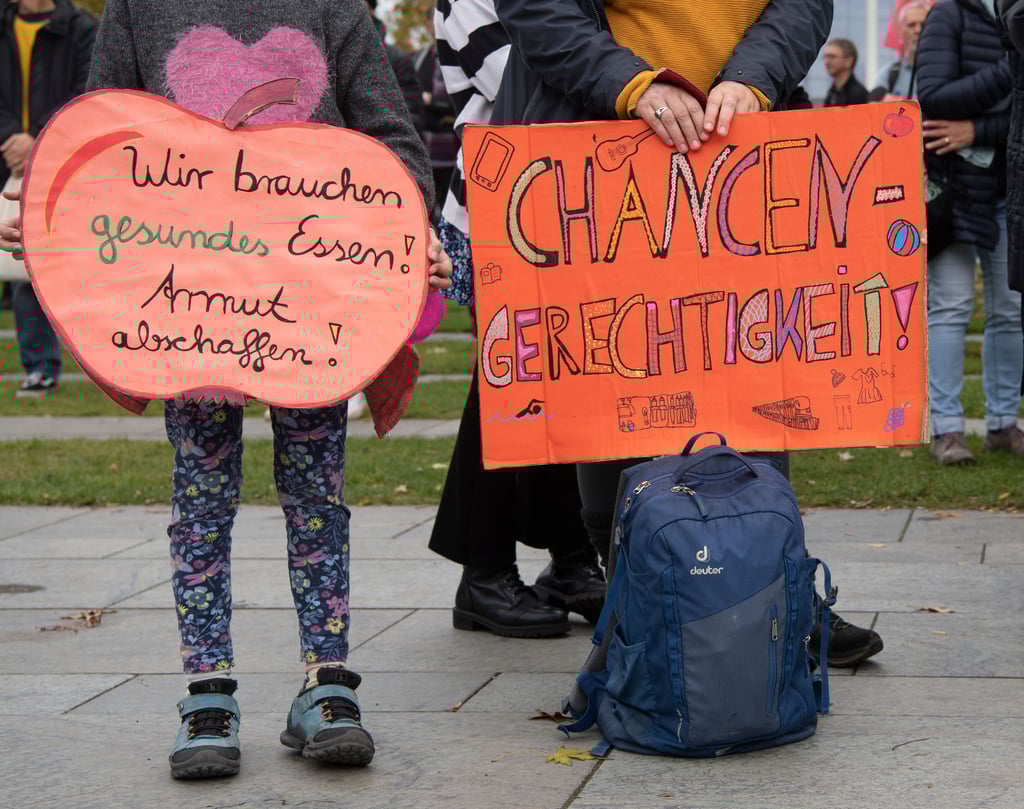 Wir brauchen
gesundes Essen!
Armut
abschaffen!
CHANCEN-
GERECHTIGKEIT!
deuter